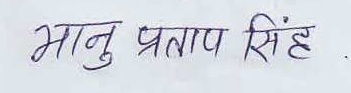 भानु प्रताप सिंह